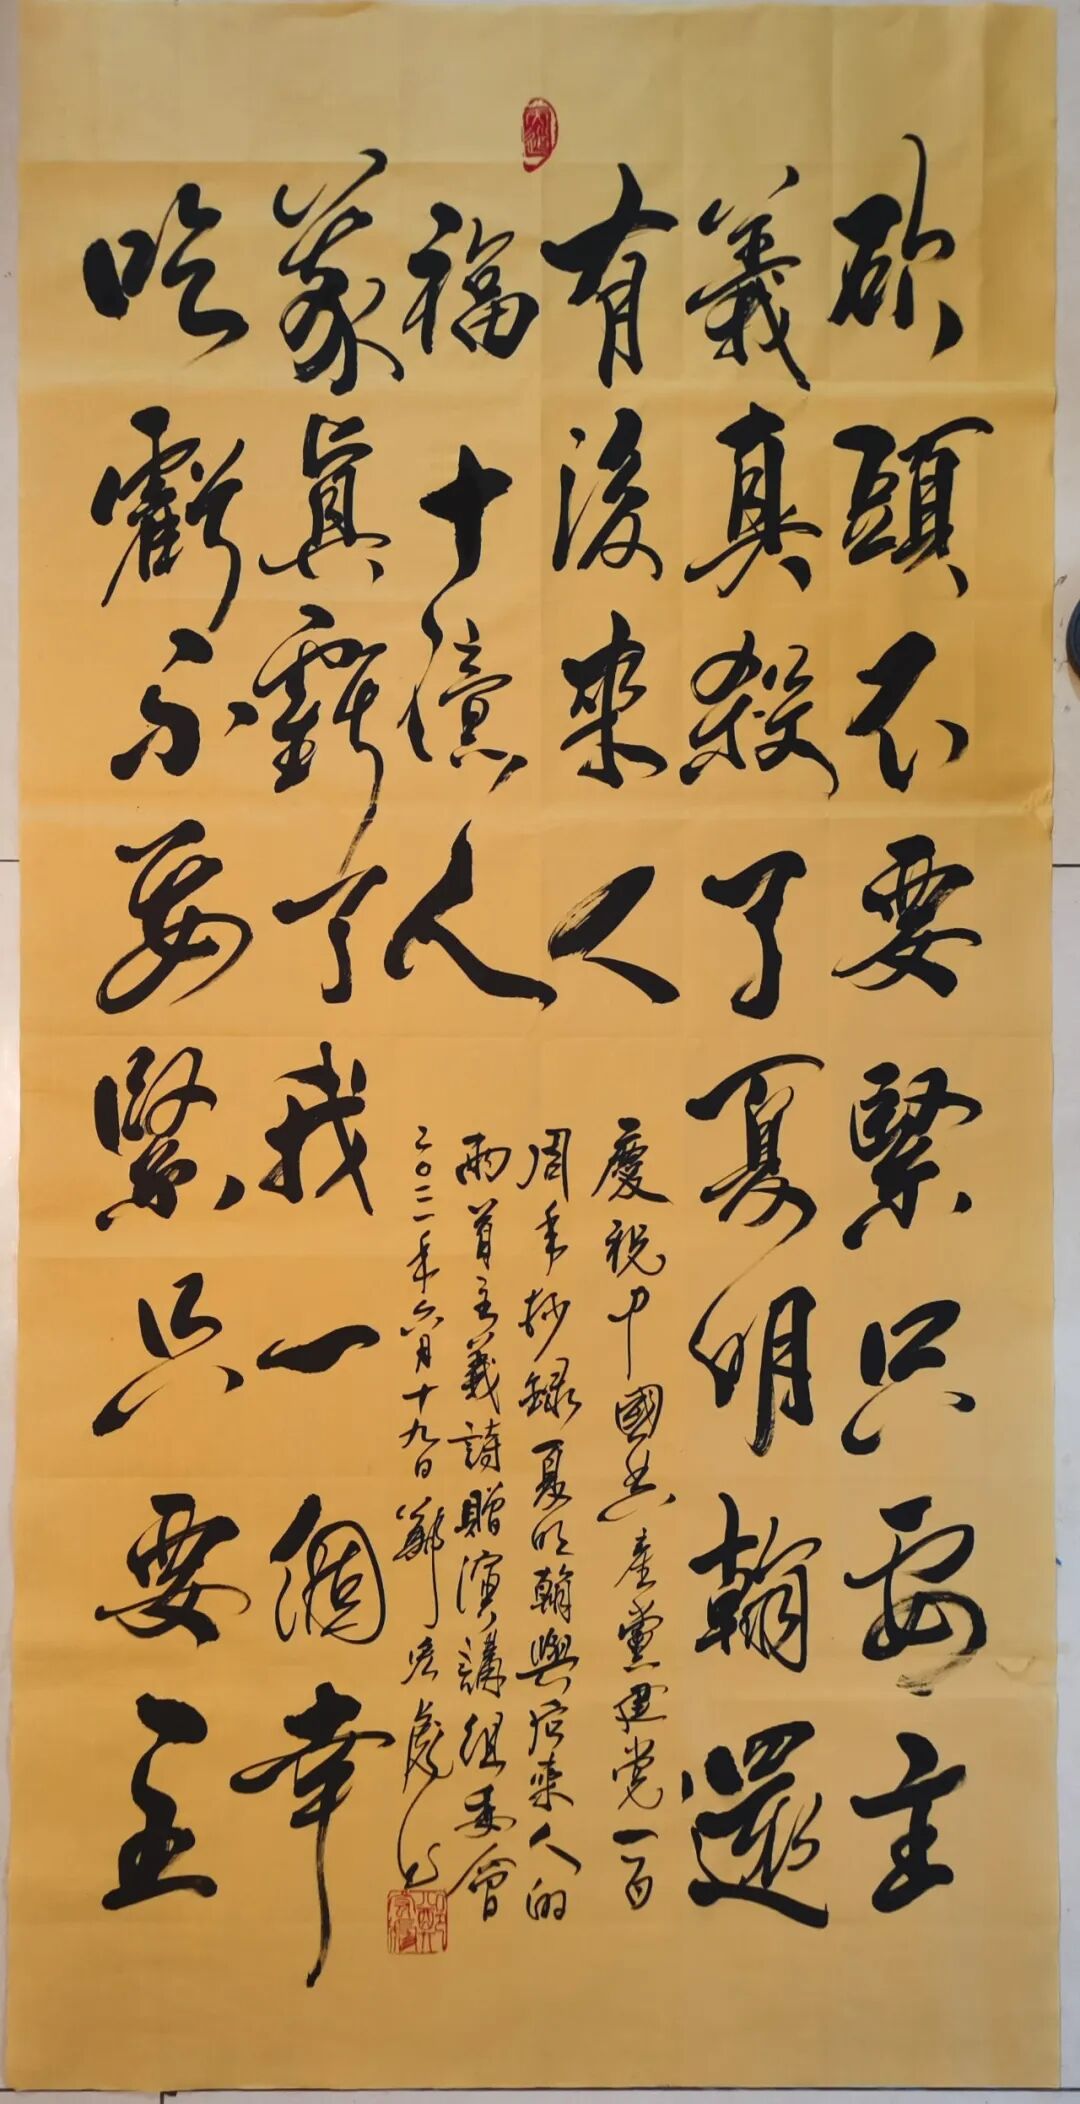 砍頭不要緊只要主
義真殺了夏明翰還
有後來人
吃虧不要緊只要主
義真虧了我一個幸
福十億人
慶祝中國共產黨建党一百
周年抄錄夏明翰與后來人的
兩首主義詩贈演講組委會
二〇二一年六月十九日鄭